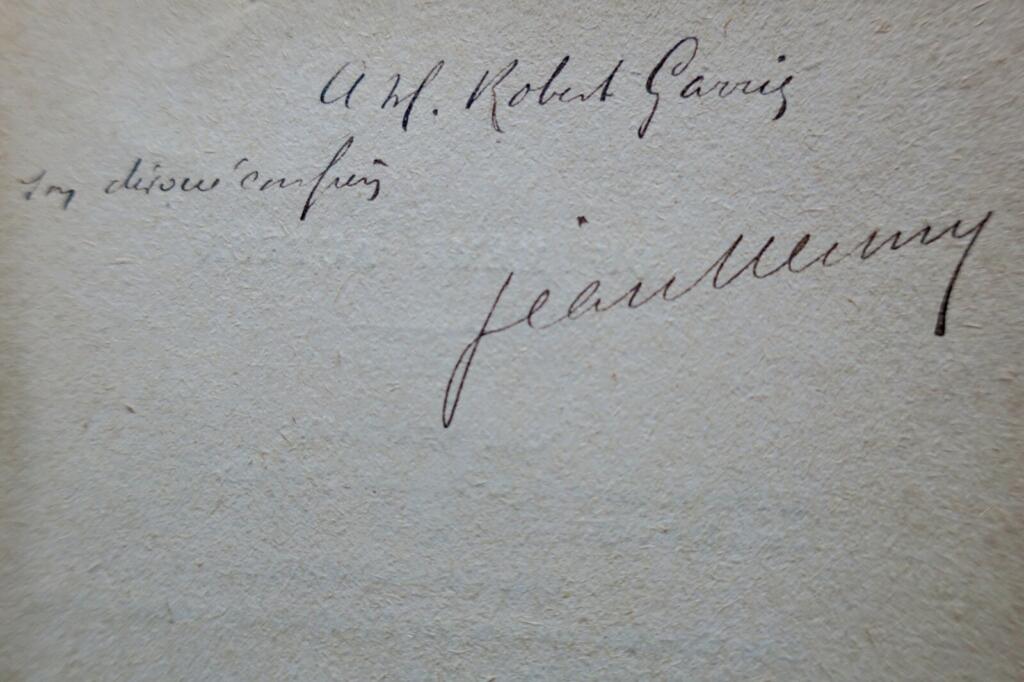 A M. Robert Garric
son dévoué confrère
Jean Mermy